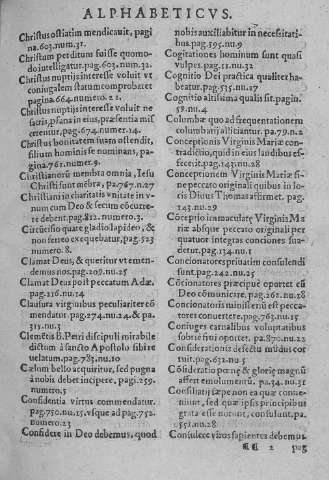 ALPHABETICVS.
Christus ostiatim mendicauit, pagi
na.603.num.31.
Christum perditum fuisse quomo-
do intelligatur.pag.603.num.32.
Christus nuptijs interesse voluit vt
coniugalem statum comprobaret
pagina.664.numero.2 1.
Christus nuptijs interesse voluit ne
sacris, psana in eius, præsentia mis
cerentur, pag.674.numer.14.
Christus bonitatem suam ostendit,
filium hominis se nominans, pa-
gina.761.numer.9.
Christianorũ membra omnia, Iesu
Christi sunt mẽbra, pa.767.nu.27
Christiani in charitatis vnitate in v-
num cum Deo & secum cõcurre-
re debent.pag.812. numero.3.
Circũcisio quare gladio lapideo, &
non ferreo exequebatur, pag.523
numero.8.
Clamat Deus, & queritur vt emen-
demus nos.pag.209.nu.25
Clamat Deus post peccatum Adæ.
pag.216.nu.14
Clausura virginibus peculiariter cõ
mendatur. pag.274.nu.24.& pa.
315.nu.3
Clemẽtis B. Petri discipuli mirabile
dictum à sancto Apostolo sibi re
uelatum.pag.783.nu.10
Cælum bello acquiritur, sed pugna
à nobis debet incipere, pagi.259.
numero.5
Confidentia virtus commendatur.
pag.750.nu.25.vsque ad pag.752.
numero.23
Confidere in Deo debemus, quod
nobis auxiliabitur in necessitati-
bus.pag.195.nu.9
Cogitationes hominum sunt quasi
vulpes.pag.51.nu.32
Cognitio Dei practica qualiter ha-
beatur.pag.535.nu.27
Cognitio altissima qualis sit.pagin.
58.nu.4
Columbæ quo ad frequentationem
columbarij allitiantur. pa.79.n.2
Conceptionis Virginis Mariæ con-
tradictio, quid in eius laudibus ef-
fecerit.pag.143.nu.28
Conceptionem Virginis Mariæ si-
ne peccato originali quibus in lo-
cis Diuus Thomas affirmet. pag.
143.nu.29
Cõceptio immaculatę Virginis Ma
riæ absque peccato originali per
quatuor integras conciones sua-
detur.pag.134.nu.1
Concionatores priuatim consulendi
sunt.pag.242.nu.25
Cõcionatores præcipuè oportet cũ
Deo cõmunicare.pag.261.nu.28
Concionatoris ministerij est pecca-
tores conuertere.pag.763.nu.15
Coniuges carnalibus voluptatibus
sobriè frui oportet. pa.870.nu.22
Considerationis defectu mũdus cor
ruit.pag.632.nu.5
Cõsideratio pœnę & glorię magnũ
affert emolumentũ. pa.34.nu.31
Consiliarij sæpe non ea quæ conue-
niunt, sed quæ ipsis principibus
grata esse norunt, consulunt.pa.
551.nu.28
Consulere viros sapientes debemus.
CC 2 pag